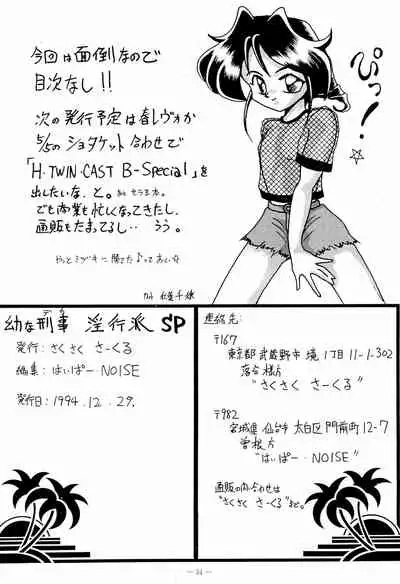 今回は面倒なので
目次なし!!
次の発行予定は春レヴォか
5/5のショタケット合わせで
「H・TWIN・CAST B-Special」を
出したいな、と。
でも商業も忙しくなってきたし、
通販もたまってるし・・ うう。
ぴっ!
幼な刑事 淫行派 SP
発行: さくさく さーくる
編集: はいぱー・NOISE
発行日: 1994.12.29.
連絡先:
〒167
東京都 武蔵野市 境 1丁目 11-1-302
落合様方
"さくさく さーくる"
〒982
宮城県 仙台市 太白区 門前町 12-7
曽根方
"はいぱー・NOISE"
通販の問い合わせは
"さくさく さーくる"まで。